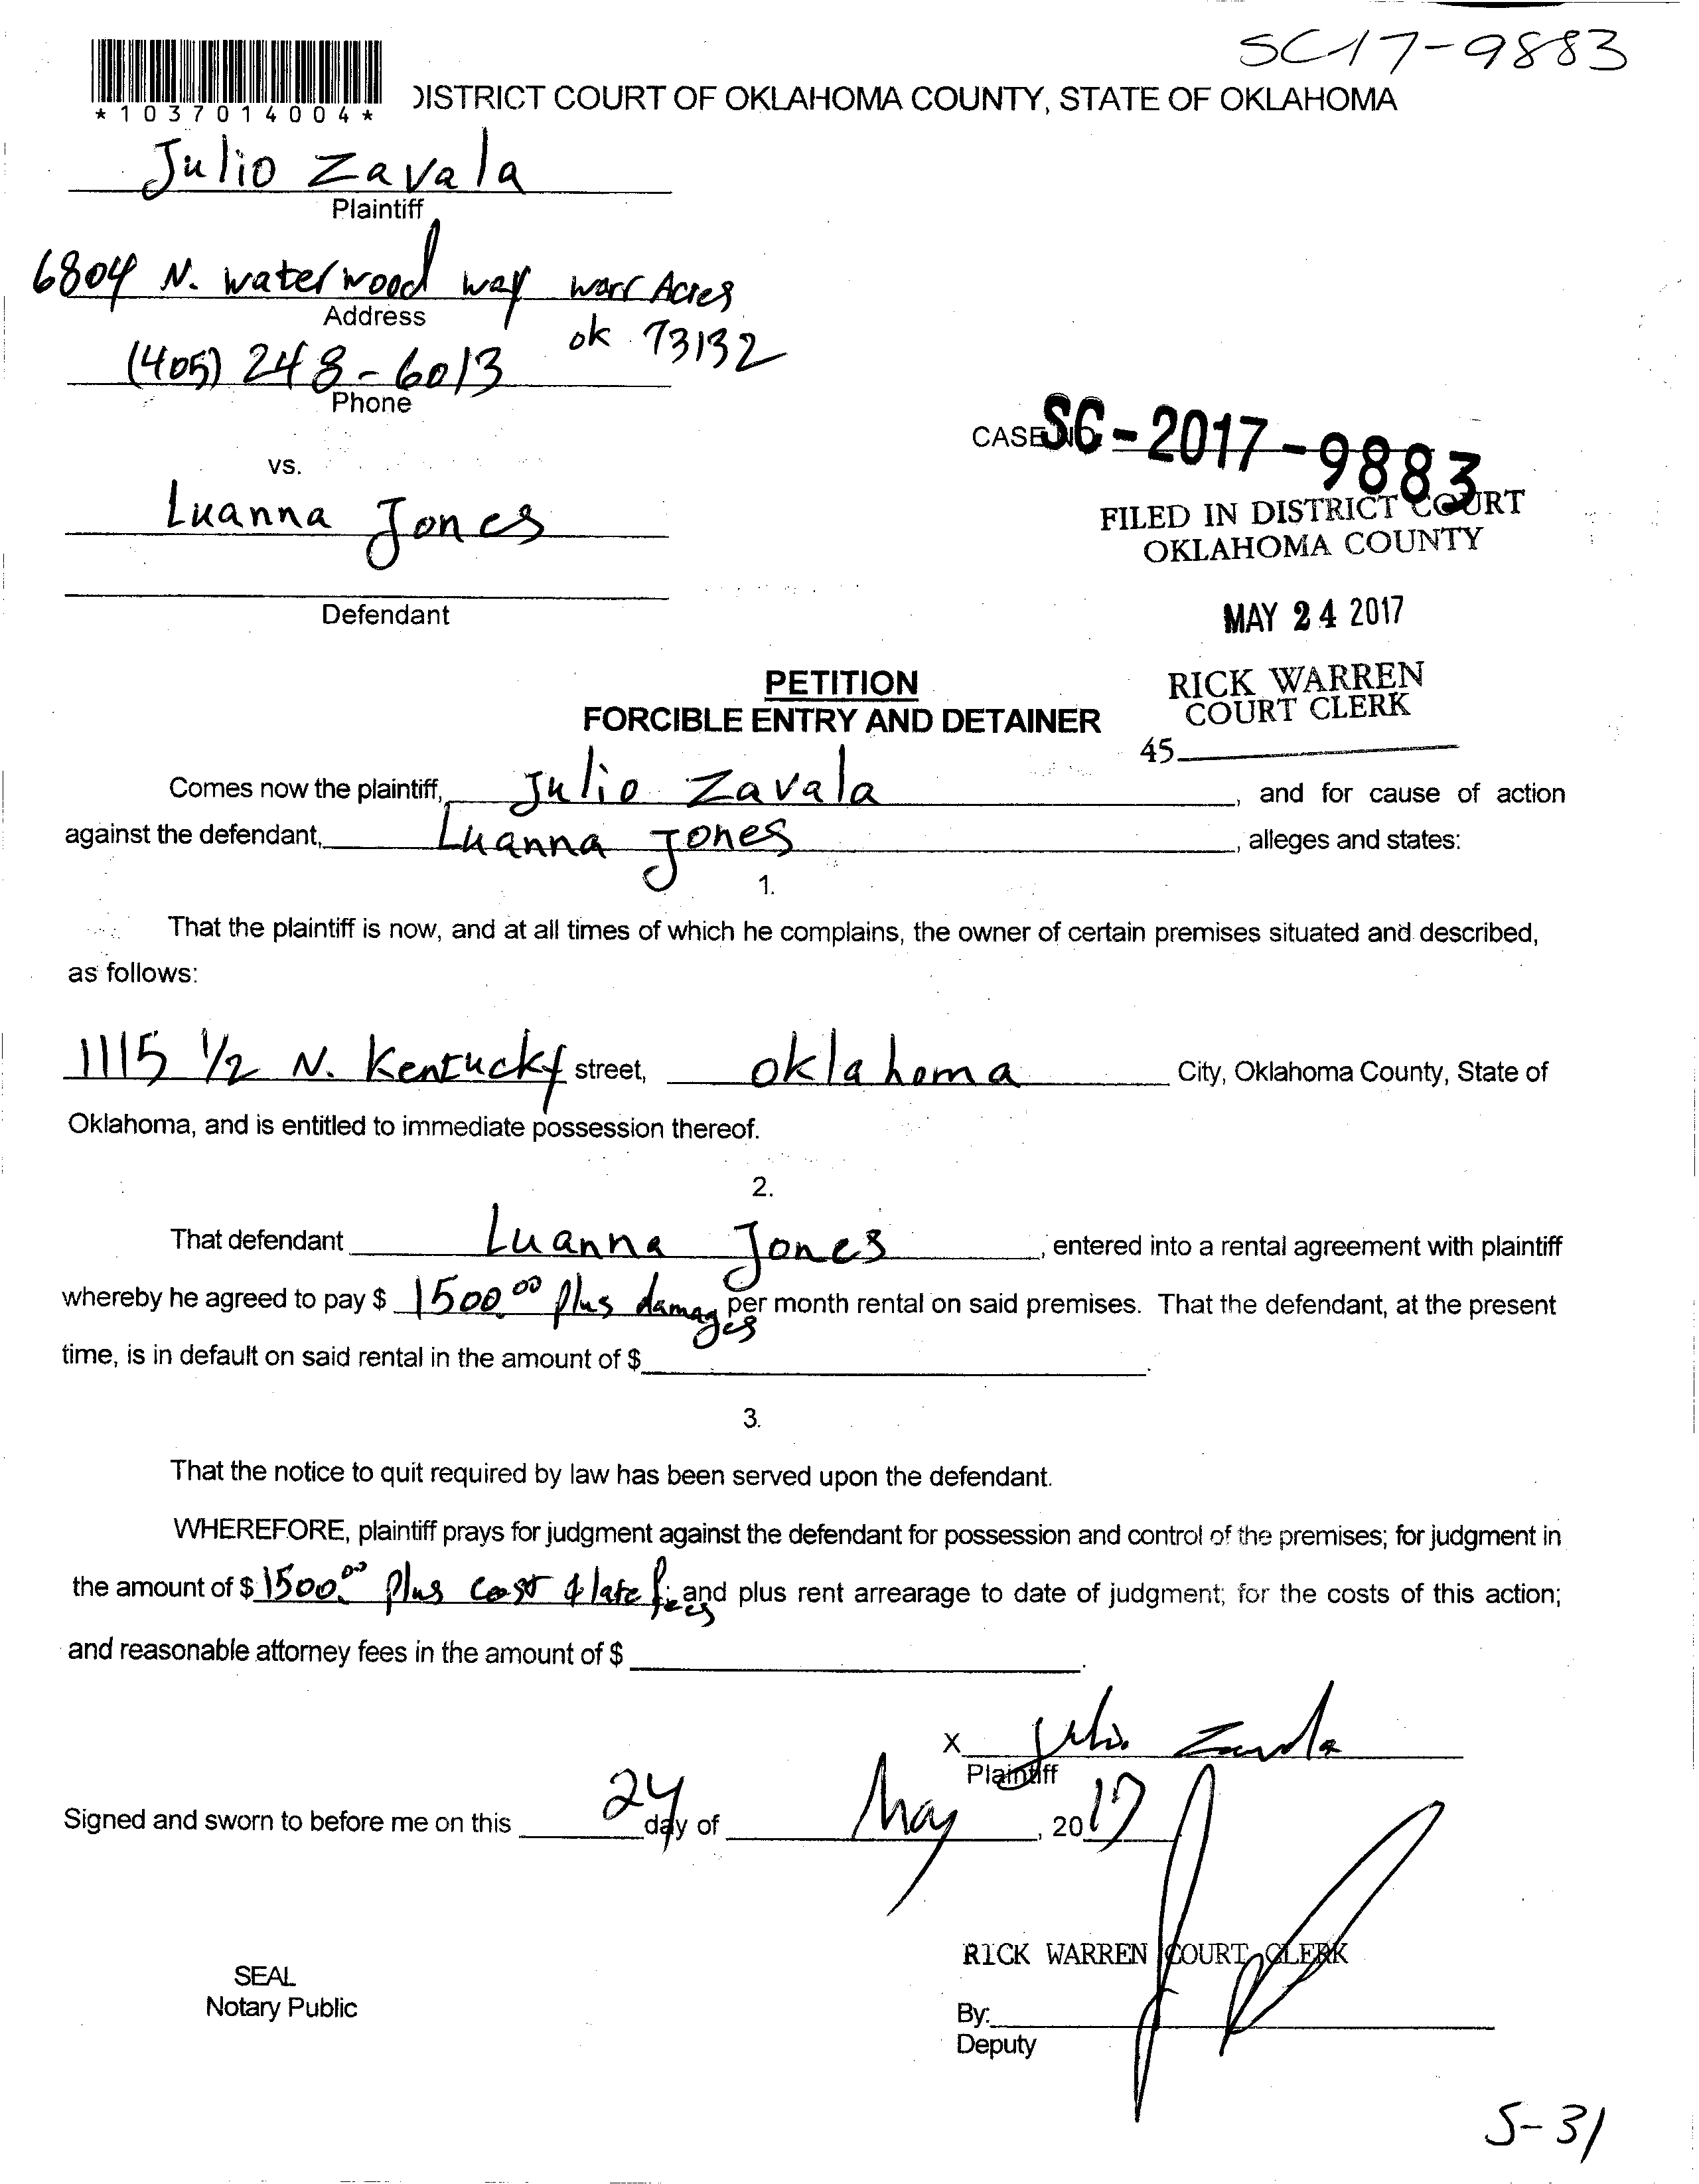 SC-17-9883
*1037014004*
DISTRICT COURT OF OKLAHOMA COUNTY, STATE OF OKLAHOMA
Julio Zavala
Plaintiff
6804 N. waterwood way warr Acres
Address
ok 73132
(405) 248-6013
Phone
CASE NO. SC-2017-9883
vs.
Luanna Jones
FILED IN DISTRICT COURT
OKLAHOMA COUNTY
Defendant
MAY 24 2017
PETITION
FORCIBLE ENTRY AND DETAINER
RICK WARREN
COURT CLERK
45
Comes now the plaintiff, Julio Zavala, and for cause of action
against the defendant, Luanna Jones, alleges and states:
1.
That the plaintiff is now, and at all times of which he complains, the owner of certain premises situated and described,
as follows:
1115 1/2 N. Kentucky street, oklahoma City, Oklahoma County, State of
Oklahoma, and is entitled to immediate possession thereof.
2.
That defendant Luanna Jones, entered into a rental agreement with plaintiff
whereby he agreed to pay $ 1500.00 plus damages per month rental on said premises. That the defendant, at the present
time, is in default on said rental in the amount of $ .
3.
That the notice to quit required by law has been served upon the defendant.
WHEREFORE, plaintiff prays for judgment against the defendant for possession and control of the premises; for judgment in
the amount of $ 1500.00 plus cost & late fees and plus rent arrearage to date of judgment; for the costs of this action;
and reasonable attorney fees in the amount of $ .
X Julio Zavala
Plaintiff
Signed and sworn to before me on this 24 day of May, 2017
RICK WARREN COURT CLERK
SEAL
Notary Public
By:
Deputy
5-31